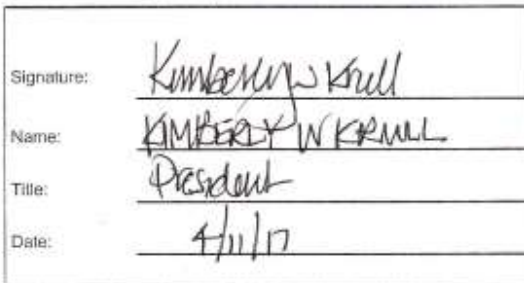 Signature: Kimberly W Krull
Name: KIMBERLY W KRULL
Title: President
Date: 4/11/17